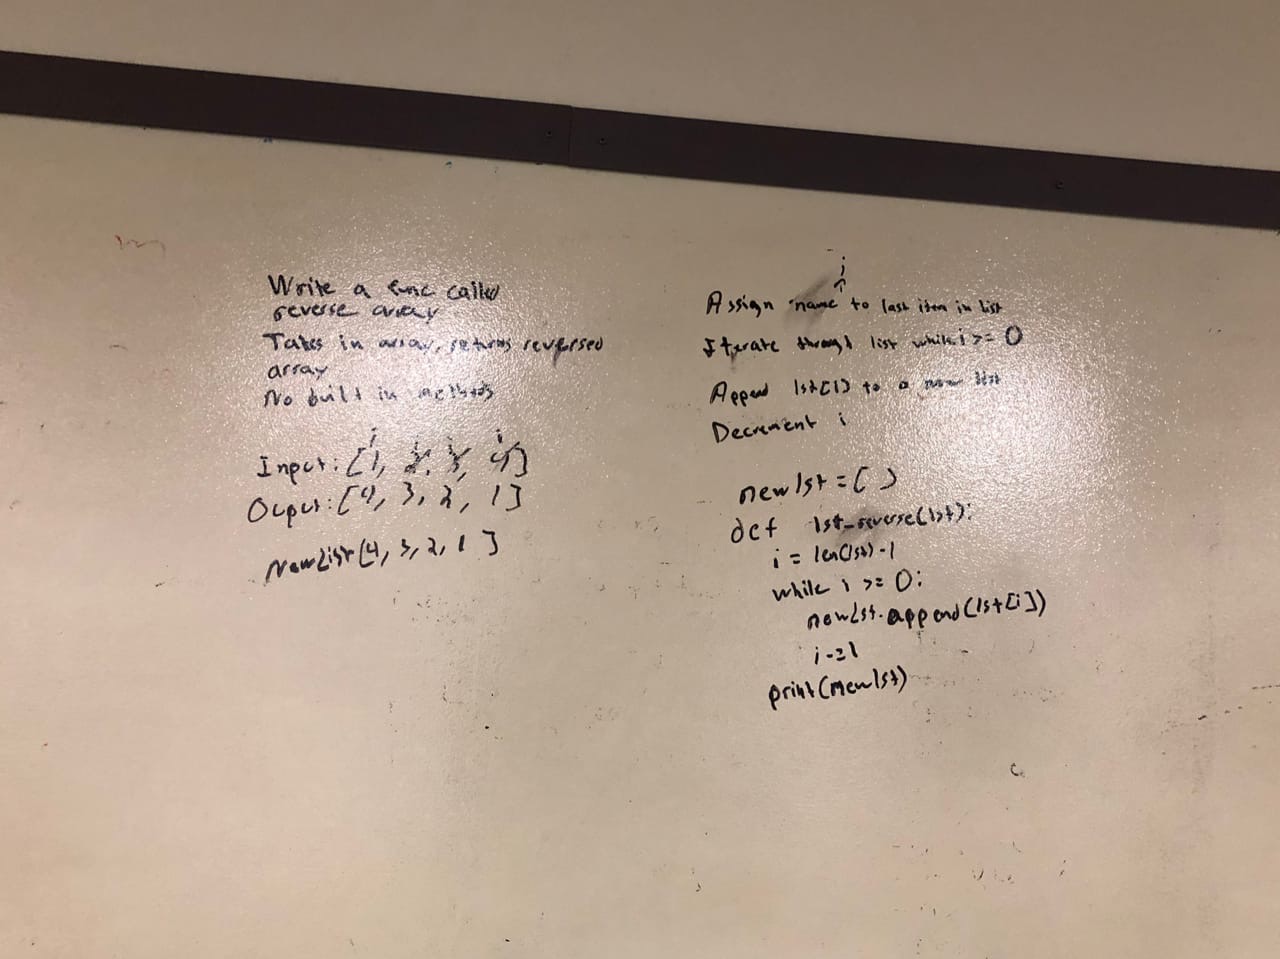 Write a func called
reverse array
Takes in array, returns reversed
array
No built in methods
i i i i
Input: [1, 2, 3, 4]
Ouput: [4, 3, 2, 1]
NewList[4, 3, 2, 1 ]
i
^
Assign name to last item in list
Iterate through list while i >= 0
Append lst[i] to a new list
Decrement i
newlst = [ ]
def lst_reverse(lst):
i = len(lst)-1
while i >= 0:
newlst.append(lst[i])
i-=1
print(newlst)